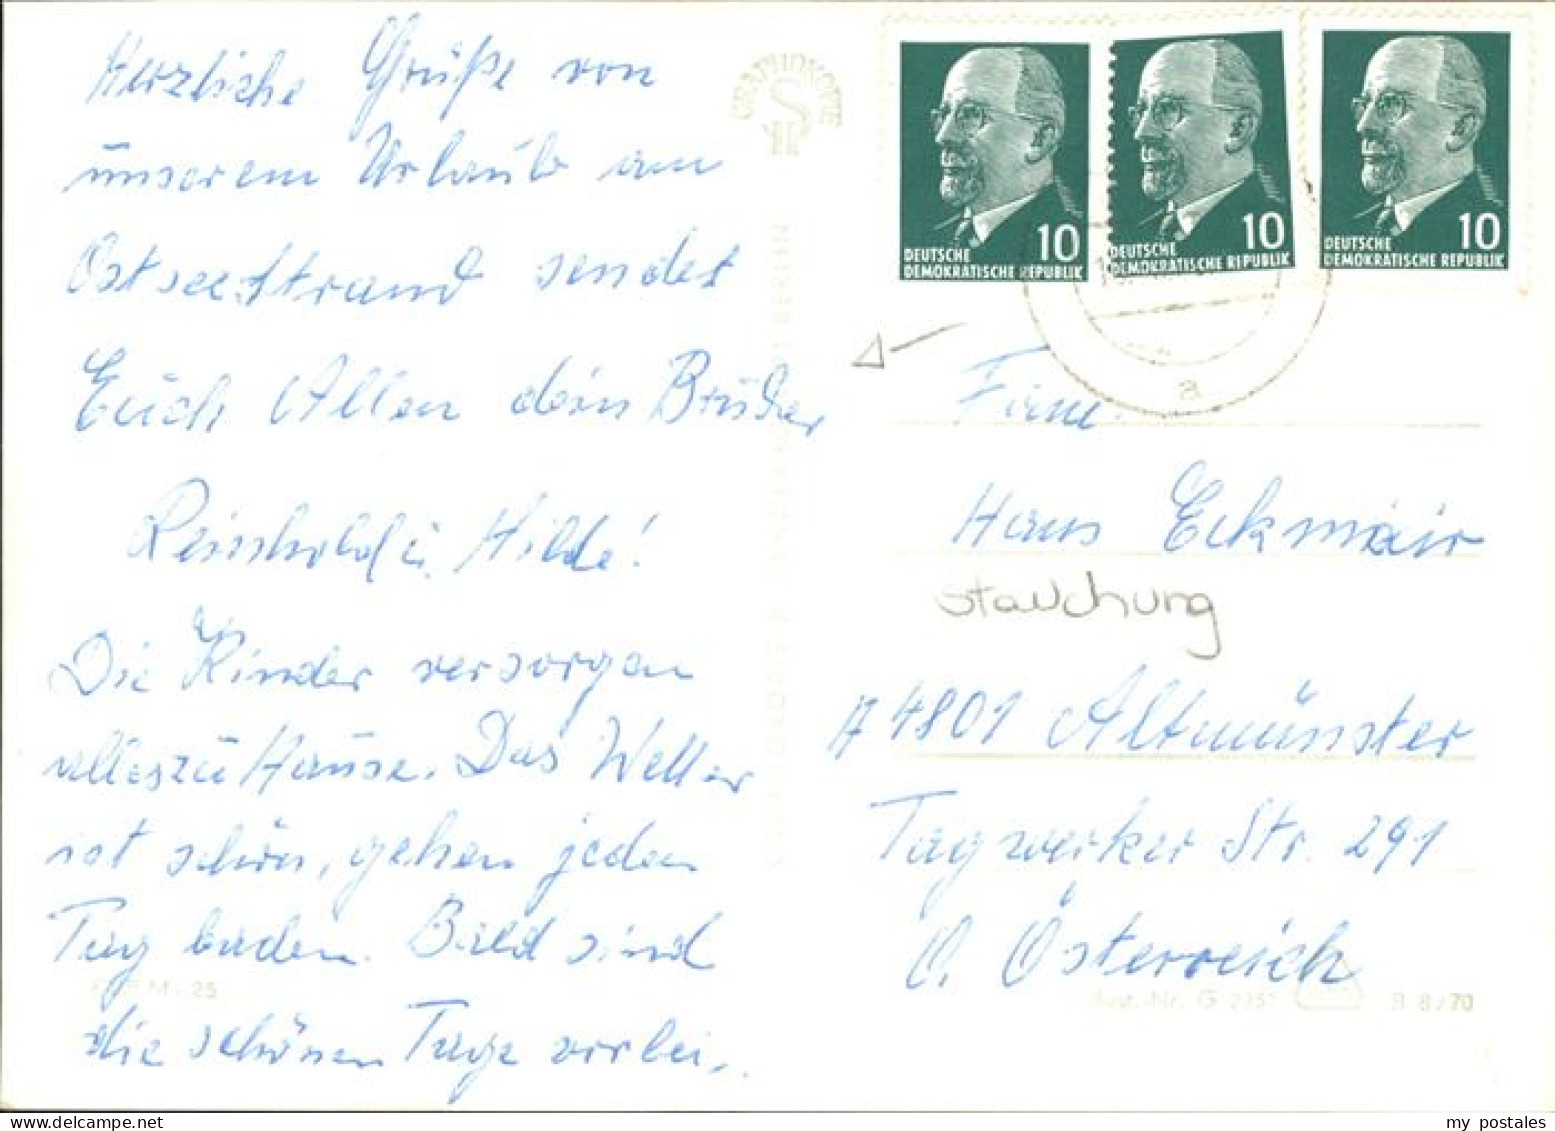 Herzliche Grüße von
unserem Urlaub am
Ostseestrand sendet
Euch Allen dein Bruder
Reinhold u. Hilde!
Die Kinder versorgen
alles zu Hause. Das Wetter
ist schön, gehen jeden
Tag baden. Bald sind
die schönen Tage vorbei.
GRAPHOKOPIE
10
DEUTSCHE
DEMOKRATISCHE REPUBLIK
10
DEUTSCHE
DEMOKRATISCHE REPUBLIK
10
DEUTSCHE
DEMOKRATISCHE REPUBLIK
a
Firma
Hans Eckmair
Stauchung
A 4801 Altmünster
Tagwerker Str. 291
Ö. Österreich
BERLIN
M 25
Best.-Nr. G
8/70
my postales